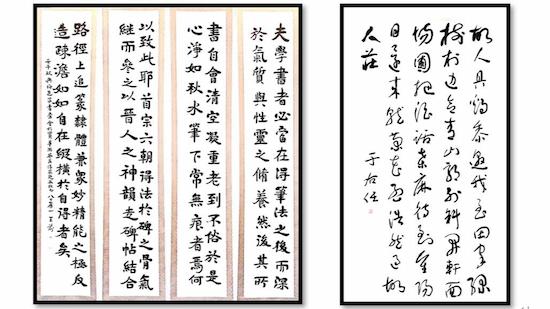 夫學書者必當在得筆法之後而深
於氣質與性靈之脩養然後其所
書自會清空凝重老到不俗於是
心淨如秋水筆下常無痕者焉何
以致此耶首宗六朝得法於碑之骨氣
繼而參之以晉人之神韻走碑帖結合
路徑上追篆隸體兼眾妙精能之極反
造疎澹如如自在縱橫於自得者矣
故人具鷄黍邀我至田家綠
樹村边合青山郭外斜開軒面
場圃把酒話桑麻待到重陽
日還來就菊花孟浩然過故
人莊
于右任